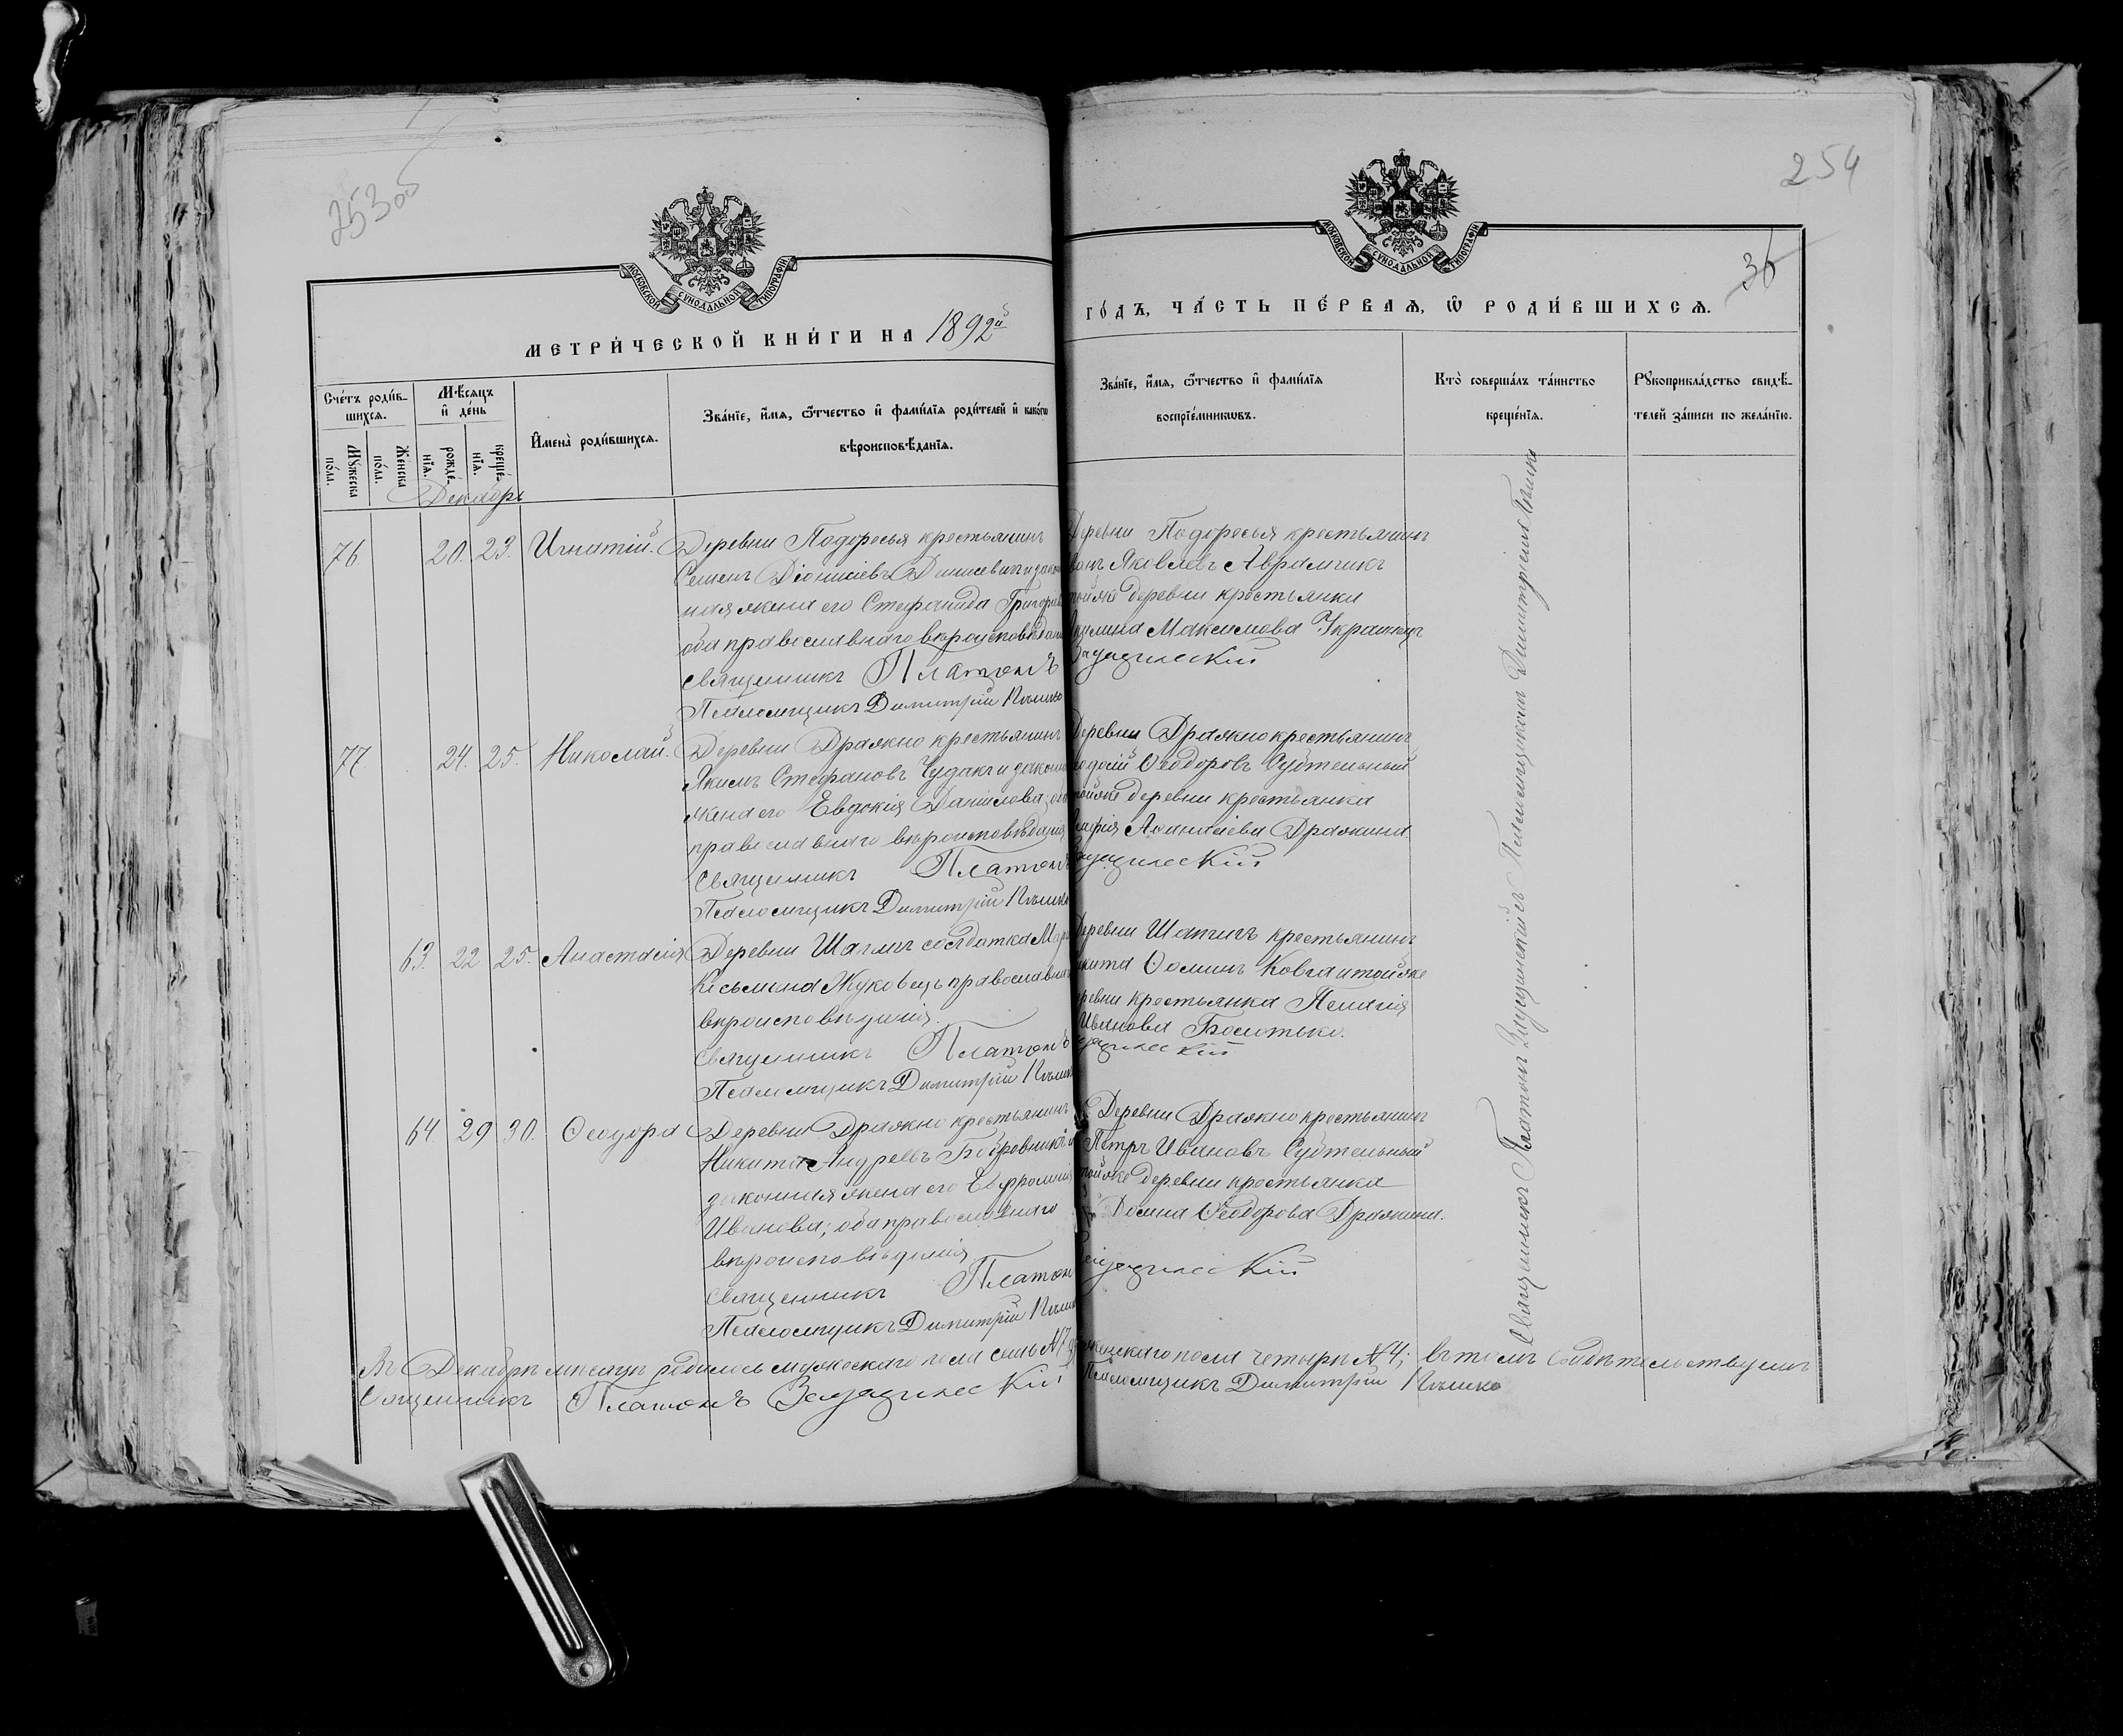 253об
254
36
МОСКОВСКОЙ СѴНОДАЛЬНОЙ ТИПОГРАФІИ
МОСКОВСКОЙ СѴНОДАЛЬНОЙ ТИПОГРАФІИ
МЕТРИ́ЧЕСКОЙ КНИ́ГИ НА 1892й
ГО́ДЪ, ЧА́СТЬ ПЕ́РВАѦ, Ѽ РОДИ́ВШИХСѦ.
Сче́тъ роди́в-
шихсѧ.
Мꙋжеска по́ла.
Женска по́ла.
Мѣ́сѧцъ
и҆ де́нь
рожде́-
нїѧ.
креще́-
нїѧ.
И҆мена̀ роди́вшихсѧ.
Зва́нїе, и҆́мѧ, ѻ҆́тчество и҆ фами́лїѧ роди́телей и҆ како́гѡ
вѣроисповѣ́данїѧ.
Зва́нїе, и҆́мѧ, ѻ҆́тчество и҆ фами́лїѧ
воспрїе́мникѡвъ.
Кто̀ соверша́лъ та́инство
креще́нїѧ.
Рꙋкоприкла́дство свидѣ́-
телей за́писи по жела́нїю.
Декабрь
76 20. 23. Игнатій.
Деревни Подоресья крестьянинъ
Семенъ Діонисіевъ Данисевичъ и закон
ная жена его Стефанида Григорьев
оба православнаго вѣроисповѣдан
Священникъ Платонъ
Псаломщикъ Димитрій
Деревни Подоресья крестьянинъ
Яковлевъ Аврамчикъ
той же деревни крестьянки
Акулина Максимова Украинецъ
77. 24. 25. Николай.
Деревни Дражно крестьянинъ
Якимъ Стефановъ Чудакъ и закон
жена его Евдокія Данилова; оба
православнаго вѣроисповѣданія
Священникъ Платонъ
Псаломщикъ Димитрій
Деревни Дражно крестьянинъ
Ѳеодоровъ Субтельный
той же деревни крестьянка
Софія Аѳанасіева Дражина
63. 22 25. Анастасія
Деревни Шапчиц солдатка Мар
Косьмина Жуковецъ православнаго
вѣроисповѣданія.
Священникъ Платонъ
Псаломщикъ Димитрій
Деревни крестьянинъ
Никита Ѳоминъ той же
деревни крестьянка Пелагія
Иванова Болотько.
64 29 30. Ѳеодора
Деревни Дражно крестьянинъ
Никита Андреевъ Бобровникъ и
законная жена его Евфросинія
Иванова; оба православнаго
вѣроисповѣданія
Священникъ Платон
Псаломщикъ Димитрій
Деревни Дражно крестьянинъ
Петръ Ивановъ Субтельный
той же деревни крестьянка
Домна Ѳеодорова Дражина.
Священникъ Платонъ Псаломщикомъ Димитріемъ
Въ Декабрѣ мѣсяцѣ родилось мужескаго пола семь №7 женскаго пола четыре №4; въ томъ свидѣтельствуемъ
Священникъ Платонъ
Псаломщикъ Димитрій